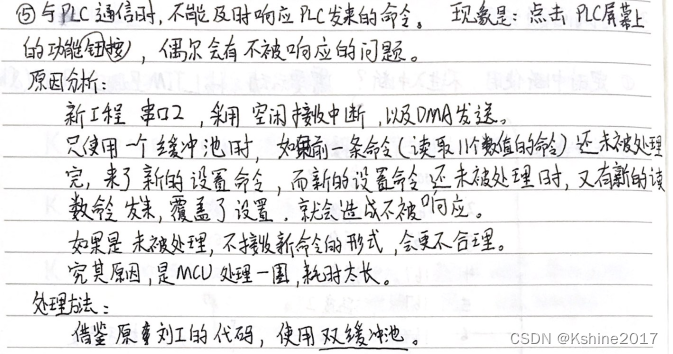 ⑤与PLC通信时,不能及时响应PLC发来的命令。 现象是:点击PLC屏幕上
的功能钮(按),偶尔会有不被响应的问题。
原因分析:
新工程 串口2,采用 空闲接收中断,以及DMA发送。
只使用一个缓冲池时,如果前一条命令(读取11个数值的命令)还未被处理
完,来了新的设置命令,而新的设置命令还未被处理时,又有新的读
数命令发来,覆盖了设置.就会造成不被响应。
如果是未被处理,不接收新命令的形式,会更不合理。
究其原因,是MCU处理一圈,耗时太长。
处理方法:
借鉴原来刘工的代码,使用双缓冲池。
CSDN @Kshine2017